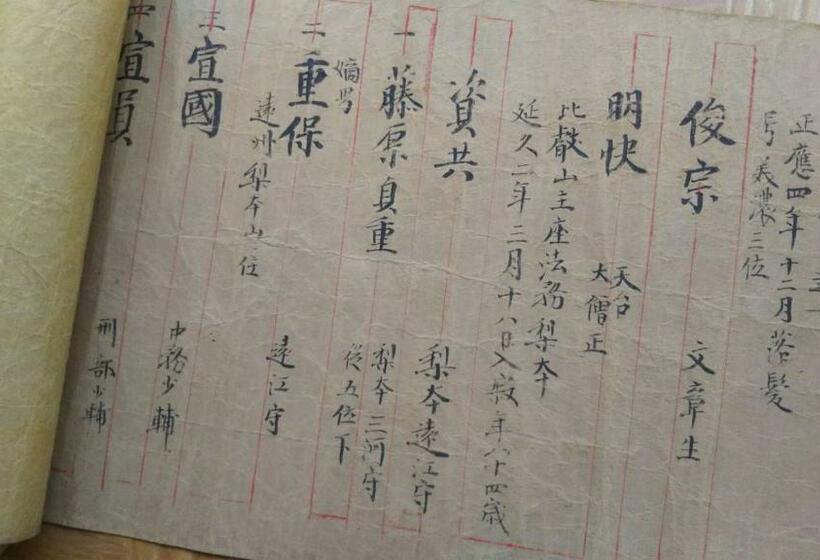 正應四年十二月落髮
号美濃三位
俊宗 文章生
明快 天台
大僧正
比叡山主座法務梨本
延久二年三月十八日入寂年八十四歳
資共 梨本遠江守
一 藤原貞重 梨本三河守
從五位下
嫡男
二 重保 遠江守
遠州梨本山住
三 宣國 中務少輔
四 宣損 刑部少輔